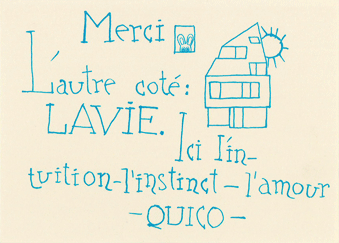 Merci
L'autre coté:
LAVIE.
Ici l'in-
tuition-l'instinct-l'amour
-QUICO-